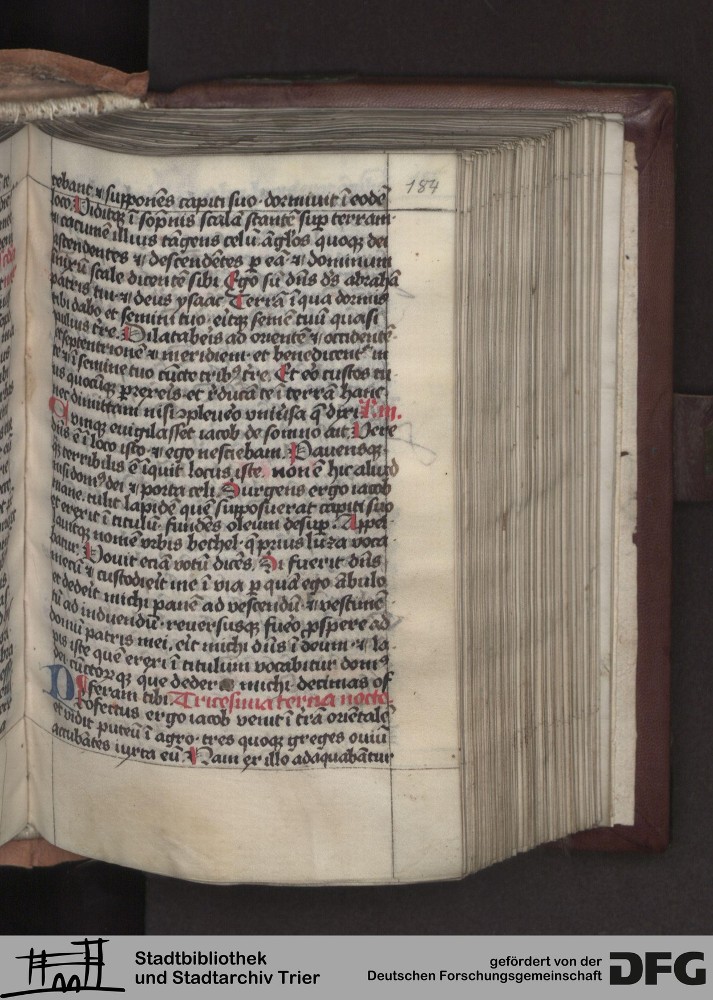 184
cebant ⁊ supponēs capiti suo· dormiuit ī eodē
loco. Viditqꝫ ī sopnis scalā stantē sup terram·
⁊ cacumē illius tāgens celū. āglos quoqꝫ dei
ascendentes ⁊ descendētes p eā· ⁊ dominum
inixū scale dicentē sibi. Ego sū dn̄s ds̄ abrahā
patris tui· ⁊ deus ysaac. Terrā ī qua dormis
tibi dabo et semini tuo· eritqꝫ semē tuū quasi
puluis tr̄e. Dilataberis ad orientē ⁊ occidentē·
⁊ septentrionē ⁊ meridiem· et benedicent in
te ⁊ ī semine tuo cūcte tribꝰ tr̄e. Et eō custos tu
us quocūqꝫ prexeris· et r̄ducā te ī terrā hanc
nec dimittam nisi ꝯpleuero vniūsa q̄ dixi.
Cunqꝫ euigilasset iacob de somno ait. Vere
dn̄s ē ī loco isto· ⁊ ego nesciebam. Pauensqꝫ·
q̄ terribilis ē īquit locus iste. non ē hic aliud
nisi domꝰ dei ⁊ porta celi. Surgens ergo iacob
mane· tulit lapidē quē supposuerat capiti suo
et erexit ī titulū· fundēs oleum desup. Appel
lauitqꝫ nomē vrbis bethel· q̄ prius luza voca
batur. Vouit eciā votū dicēs. Si fuerit dn̄s
mecū ⁊ custodierit me ī via p quā ego ābulo
et dederit michi panē ad vescendū· ⁊ vestimē
tū ad induendū· reuersusqꝫ fuero pspere ad
domū patris mei, erit michi dn̄s ī deum· ⁊ la
pis iste quē erexi ī titulum vocabitur domꝰ
dei· cūctorūqꝫ que dederis michi· decimas of
feram tibi. Tricesima tercia nocte
Profectus ergo iacob venit ī tr̄a orientalē
et vidit puteū ī agro· tres quoqꝫ greges ouiū
accubātes iuxta eū. Nam ex illo adaquabātur
Stadtbibliothek
und Stadtarchiv Trier
gefördert von der
Deutschen Forschungsgemeinschaft
DFG